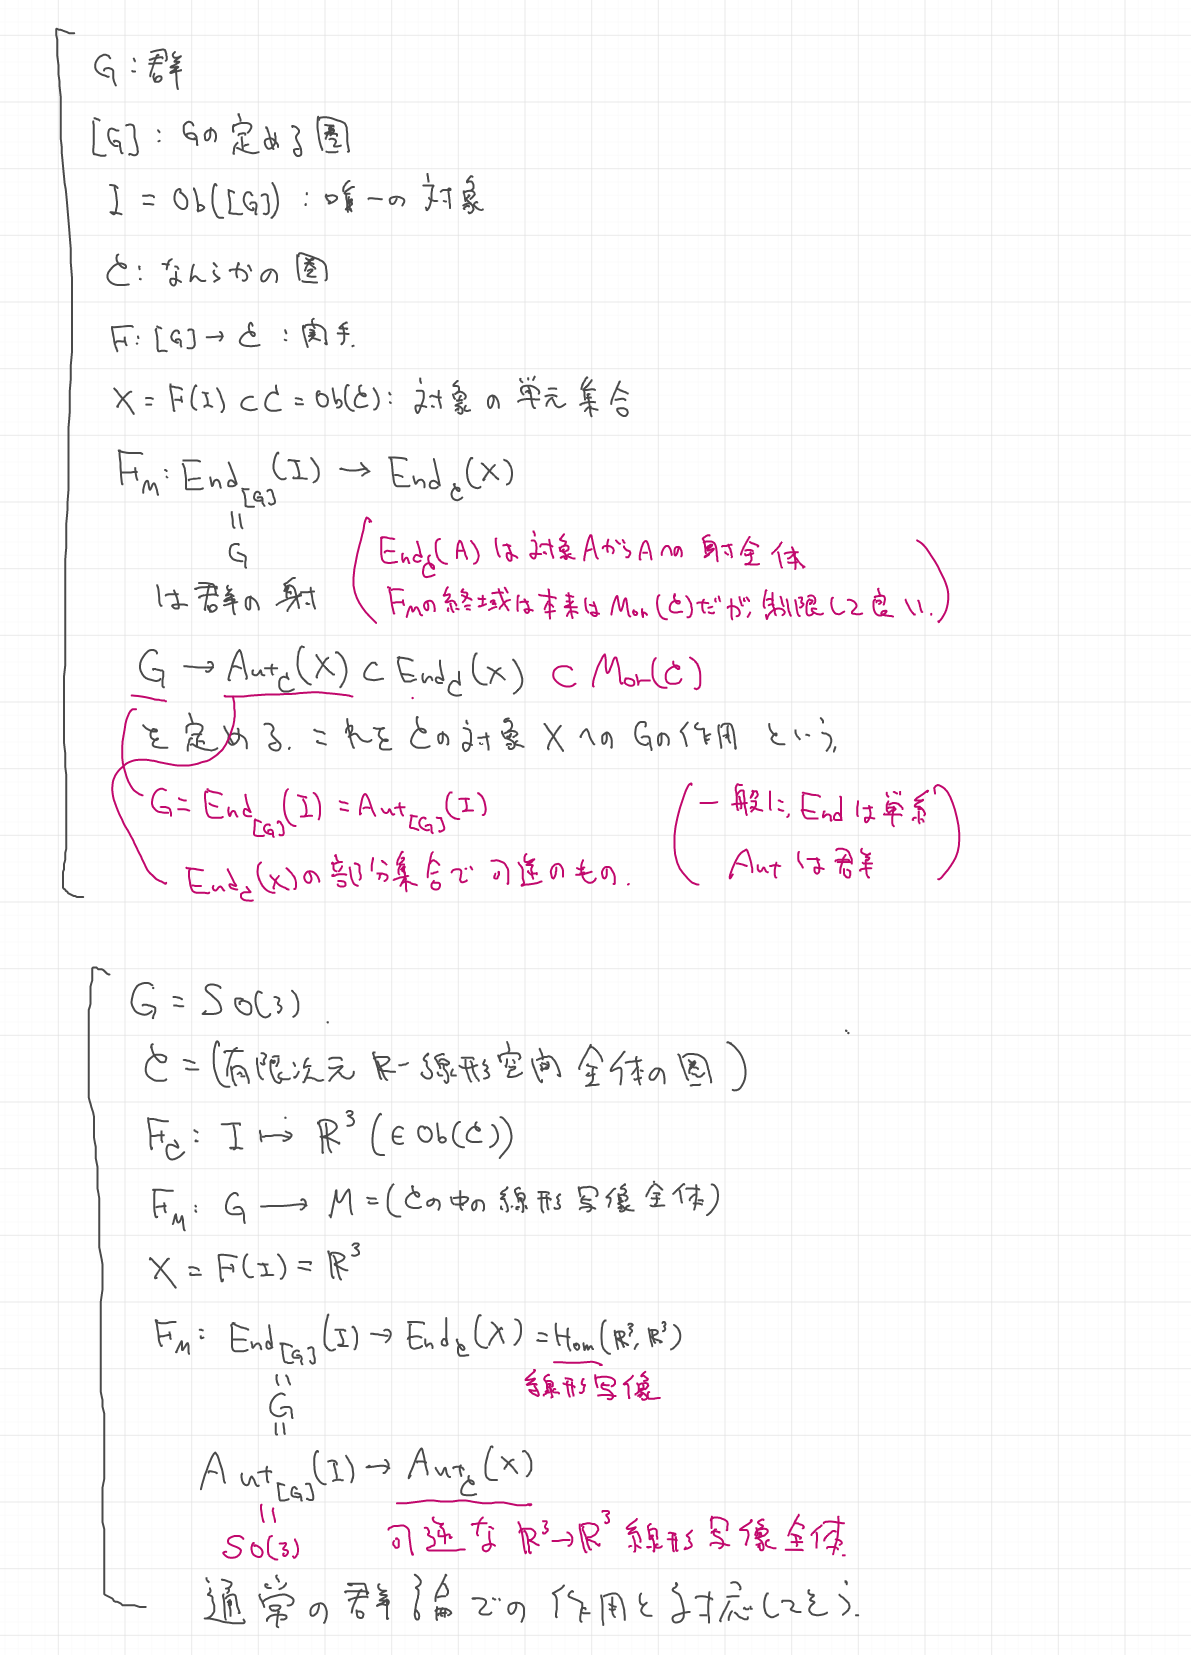 G：群
[G]：Gの定める圏
I = Ob([G])：唯一の対象
𝒞：なんらかの圏
F：[G]→𝒞：関手.
X = F(I) ⊂ C = Ob(𝒞)：対象の単元集合
F_M：End_[G](I) → End_𝒞(X)
=
G
は群の射
End_𝒞(A)は対象AからAへの射全体
F_Mの終域は本来はMor(𝒞)だが,制限して良い.
G → Aut_𝒞(X) ⊂ End_𝒞(X) ⊂ Mor(𝒞)
を定める. これを𝒞の対象XへのGの作用という.
G = End_[G](I) = Aut_[G](I)
End_𝒞(X)の部分集合で可逆のもの.
(一般に, Endは単系
Autは群)
G = SO(3)
𝒞 = (有限次元 ℝ-線形空間全体の圏)
F_C：I ↦ ℝ³ (∈ Ob(𝒞))
F_M：G → M = (𝒞の中の線形写像全体)
X = F(I) = ℝ³
F_M：End_[G](I) → End_𝒞(X) = Hom(ℝ³, ℝ³)
線形写像
=
G
=
Aut_[G](I) → Aut_𝒞(X)
=
SO(3)
可逆なℝ³→ℝ³線形写像全体.
通常の群論での作用と対応してそう.